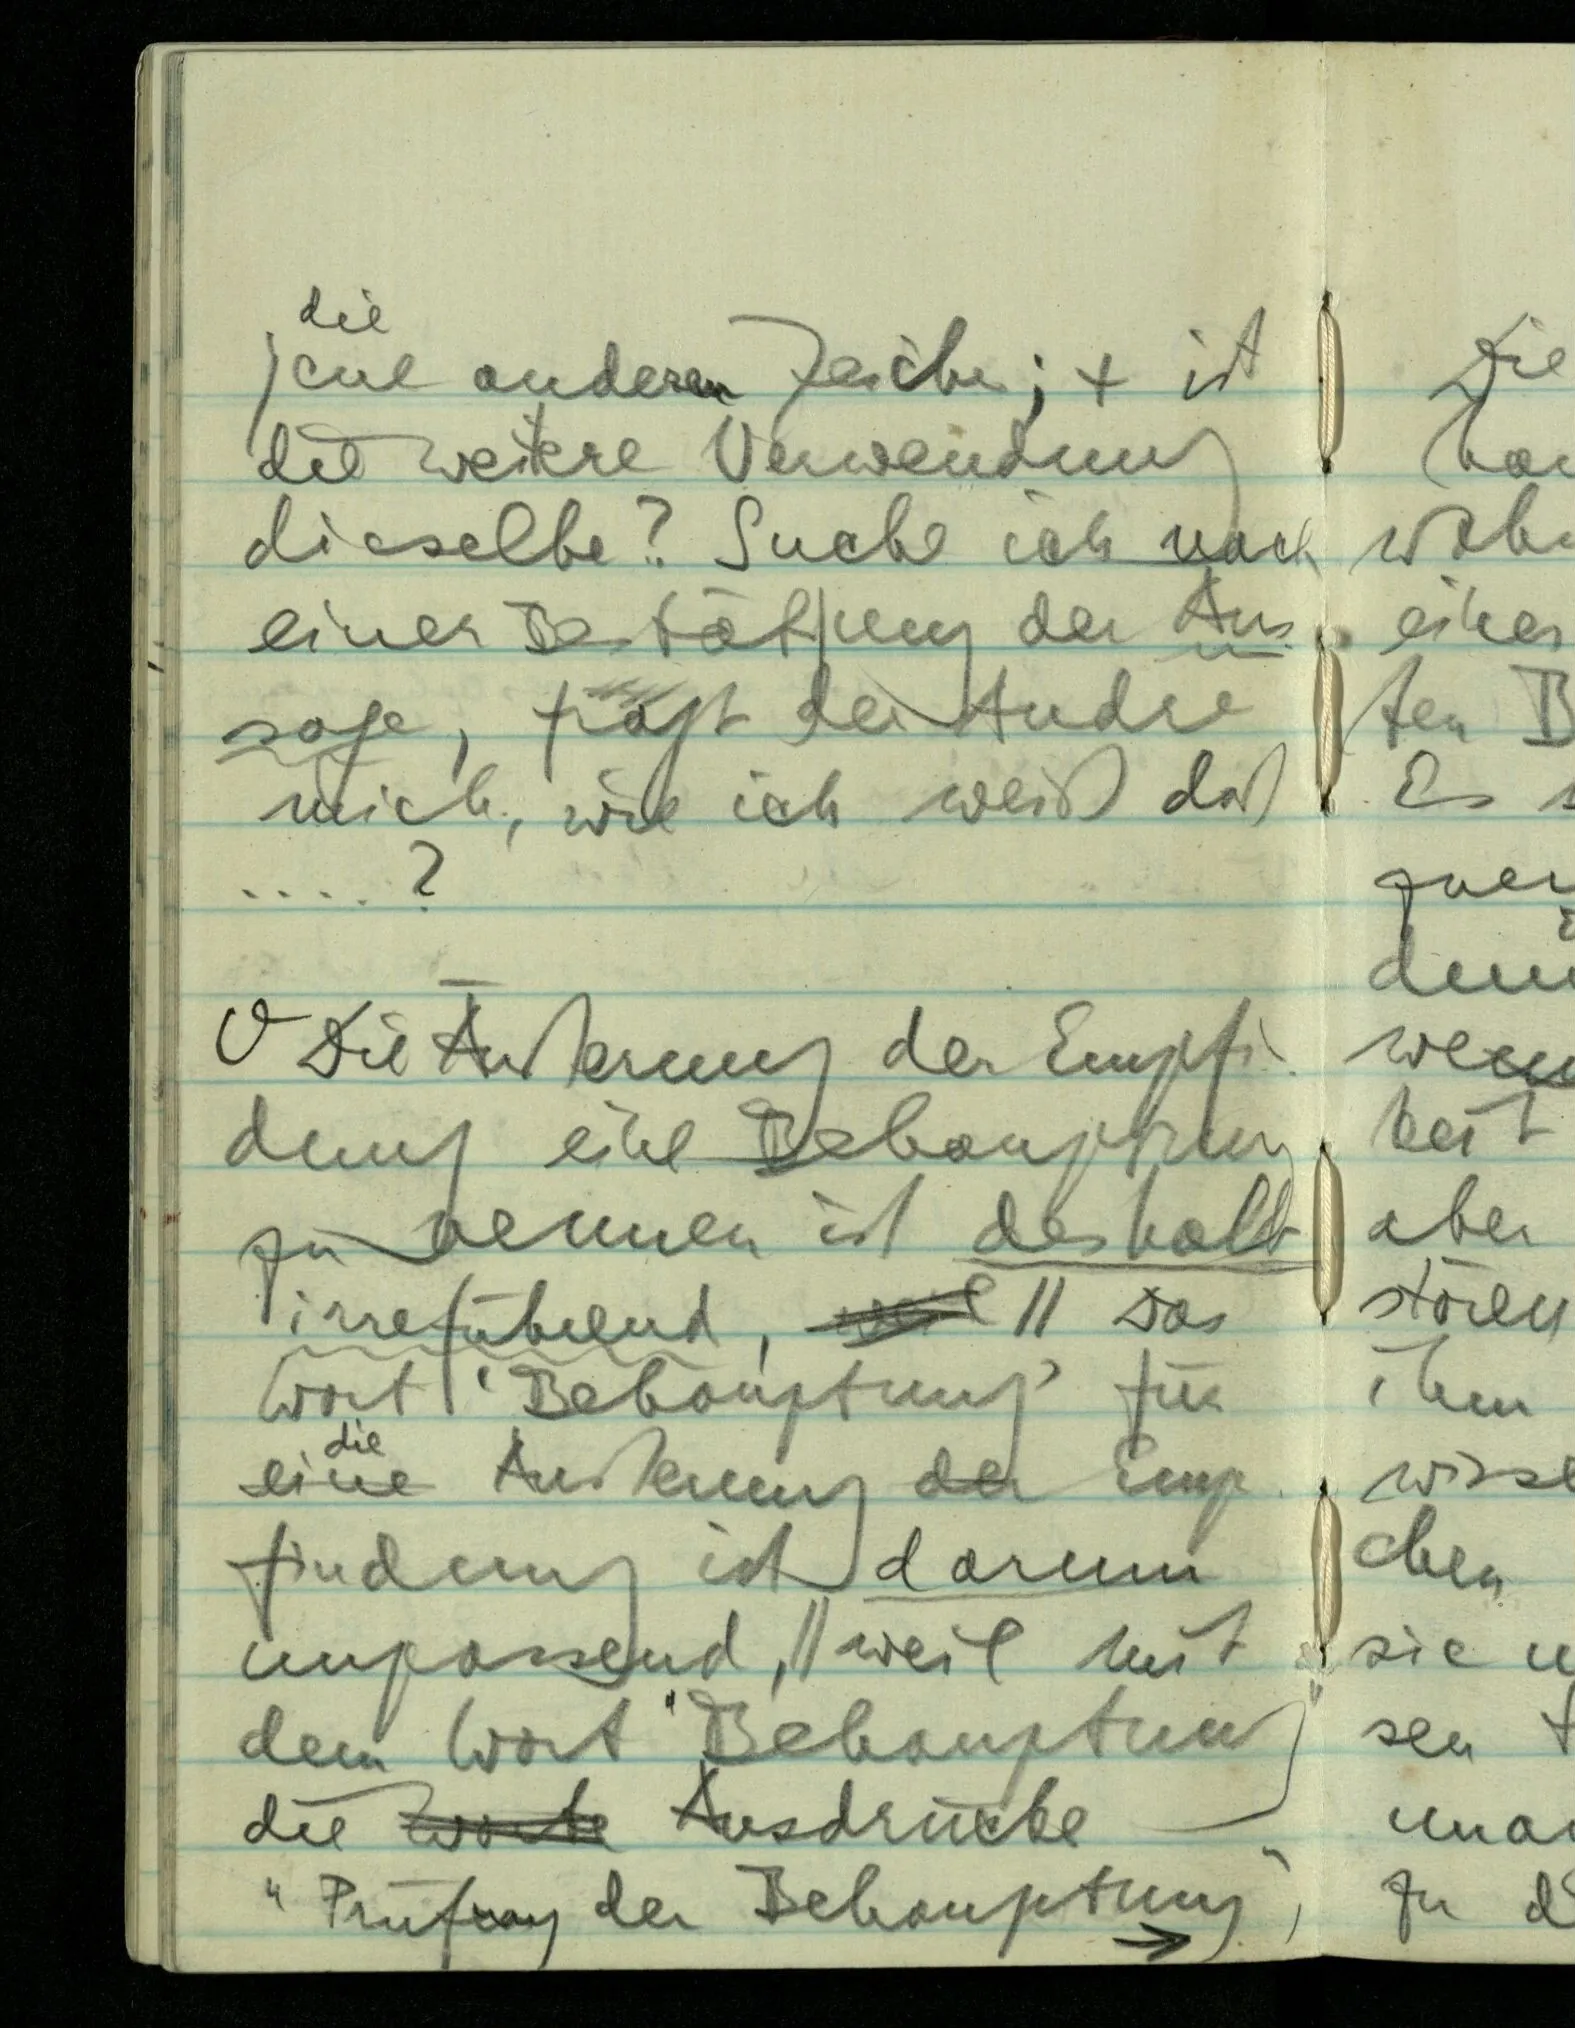 die
jene anderen Zeichen; + ist
die weitere Verwendung
dieselbe? Suche ich nach
einer Bestätigung der Aus-
sage, frägt der Andre
mich, wie ich weiß daß
....?
∀ Die Äußerung der Empfin-
dung eine Behauptung
zu nennen ist deshalb
irreführend, weil // Das
Wort 'Behauptung' für
die
eine Äußerung der Emp-
findung ist darum
unpassend, // weil mit
dem Wort "Behauptung"
die Worte Ausdrücke
"Prüfung der Behauptung",
→
Die
wahr
einer
ten B
Es s
zuer
wenn
keit
aber
stören
ihm
wisse
chen
sie u
sen
unan
zu d